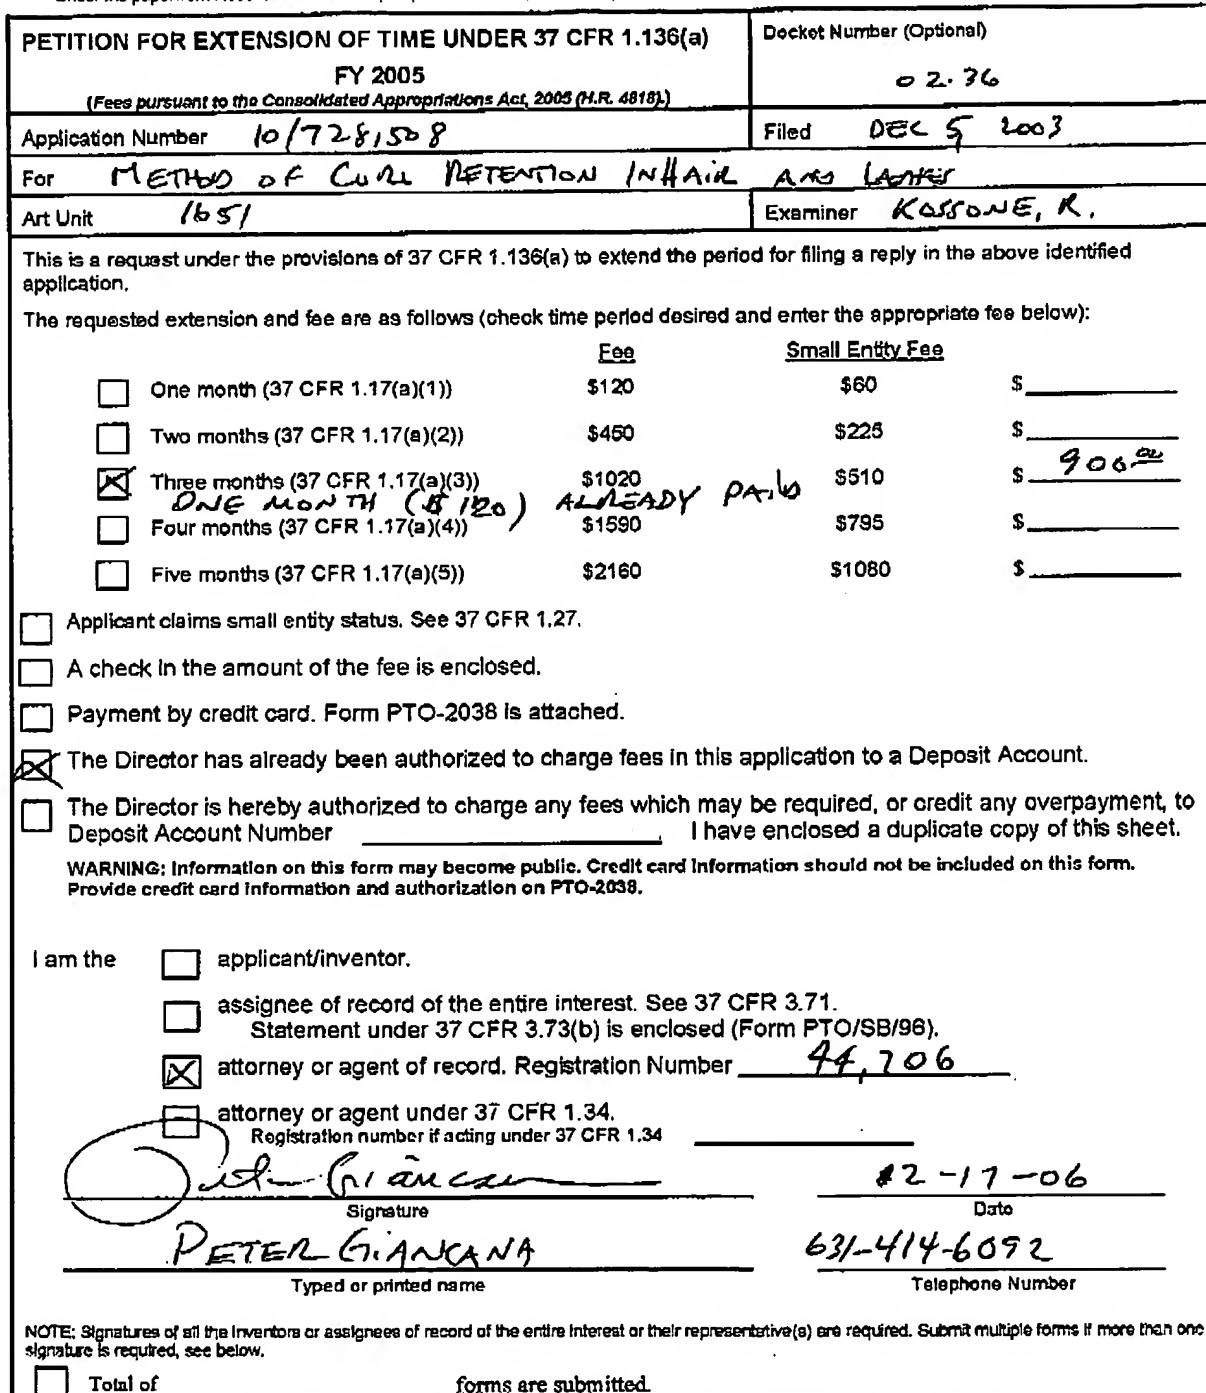 PETITION FOR EXTENSION OF TIME UNDER 37 CFR 1.136(a)
FY 2005
(Fees pursuant to the Consolidated Appropriations Act, 2005 (H.R. 4818).)
Docket Number (Optional)
02.36
Application Number 10/728,508
Filed DEC 5 2003
For METHOD OF CURL RETENTION IN HAIR AND LASHES
Art Unit 1651
Examiner KOSSONE, R.
This is a request under the provisions of 37 CFR 1.136(a) to extend the period for filing a reply in the above identified
application.
The requested extension and fee are as follows (check time period desired and enter the appropriate fee below):
Fee Small Entity Fee
One month (37 CFR 1.17(a)(1)) $120 $60 $
Two months (37 CFR 1.17(a)(2)) $450 $225 $
Three months (37 CFR 1.17(a)(3)) $1020 $510 $ 900.00
ONE MONTH ($120) ALREADY PAID
Four months (37 CFR 1.17(a)(4)) $1590 $795 $
Five months (37 CFR 1.17(a)(5)) $2160 $1080 $
Applicant claims small entity status. See 37 CFR 1.27.
A check in the amount of the fee is enclosed.
Payment by credit card. Form PTO-2038 is attached.
The Director has already been authorized to charge fees in this application to a Deposit Account.
The Director is hereby authorized to charge any fees which may be required, or credit any overpayment, to
Deposit Account Number . I have enclosed a duplicate copy of this sheet.
WARNING: Information on this form may become public. Credit card information should not be included on this form.
Provide credit card information and authorization on PTO-2038.
I am the applicant/inventor.
assignee of record of the entire interest. See 37 CFR 3.71.
Statement under 37 CFR 3.73(b) is enclosed (Form PTO/SB/96).
attorney or agent of record. Registration Number 44,706
attorney or agent under 37 CFR 1.34.
Registration number if acting under 37 CFR 1.34
Peter Giancana 2-17-06
Signature Date
PETER GIANCANA 631-414-6092
Typed or printed name Telephone Number
NOTE: Signatures of all the inventors or assignees of record of the entire interest or their representative(s) are required. Submit multiple forms if more than one
signature is required, see below.
Total of forms are submitted.